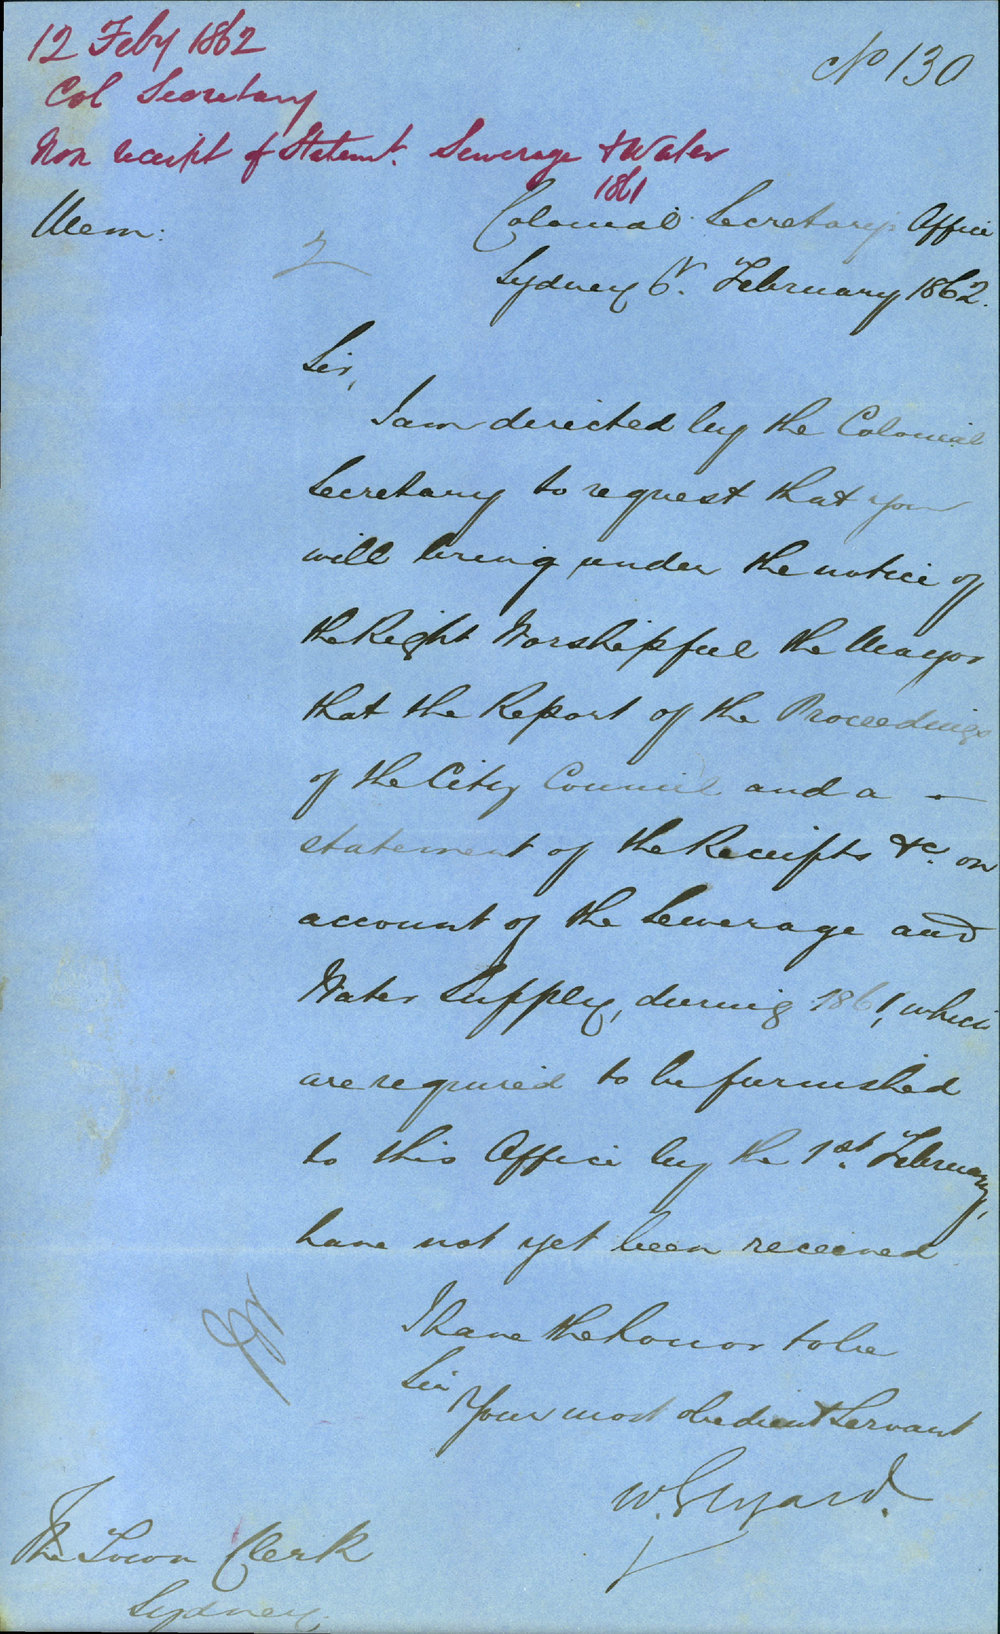 12 Feby 1862
No 130
Col Secretary
Non receipt of Statemt. Sewerage & Water
1861
Mem:
Colonial Secretary's Office
Sydney February 1862.
Sir,
I am directed by the Colonial
Secretary to request that you
will bring under the notice of
the Right Worshipful the Mayor
that the Report of the Proceedings
of the City Council and a –
statement of the Receipts &c. on
account of the Sewerage and
Water Supply, during 1861, which
are required to be furnished
to this Office by the 1st. February,
have not yet been received
I have the honor to be
Sir
Your most obedient Servant
The Town Clerk
Sydney.